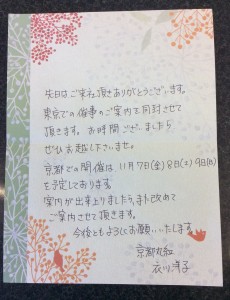 先日はご来社頂きありがとうございます。
東京での催事のご案内を同封させて
頂きます。お時間ございましたら
ぜひお越し下さいませ。
京都での開催は 11月7日(金)8日(土)9日(日)
を予定しております。
案内が出来上りましたら、また改めて
ご案内させて頂きます。
今後ともよろしくお願いいたします。
京都丸紅
衣川洋子